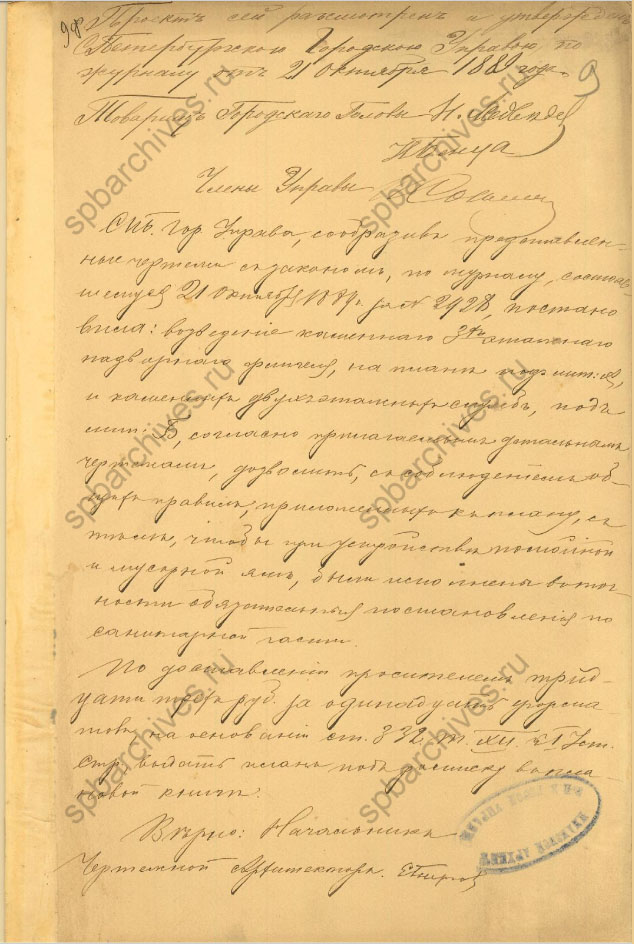 Проектъ сей разсмотренъ и утвержденъ
С. Петербургскою Городскою Управою, по
журналу отъ 21 Октября 1889 года.
9
Товарищъ Городскаго Головы Н. Медведев
Члены Управы
СПб. Гор. Управа, сообразивъ представлен-
ные чертежи съ закономъ, по журналу, состояв-
шемуся 21 Октября 1889 г. за № 2928, постано
вила: возведеніе каменнаго 3хъ этажнаго
надворнаго флигеля, на планѣ подъ лит: А,
и каменныхъ двухъэтажныхъ службъ, подъ
лит: Б, согласно прилагаемымъ детальнымъ
чертежамъ, дозволить, съ соблюденіемъ об-
щихъ правилъ, приложенныхъ къ плану, съ
тѣмъ, чтобы при устройствѣ помойной
и мусорной ямъ, были исполнены въ точ-
ности обязательныя постановленія по
санитарной части.
По доставленіи просителемъ трид-
цати трехъ руб. за одинадцать форма
товъ, на основаніи ст. 332, т. XII ч. I Уст.
Стр., выдать планъ подъ росписку въ пла-
новой книгѣ.
Вѣрно: Начальникъ
Чертежной Архитекторъ
spbarchives.ru
spbarchives.ru
spbarchives.ru
spbarchives.ru
spbarchives.ru
spbarchives.ru